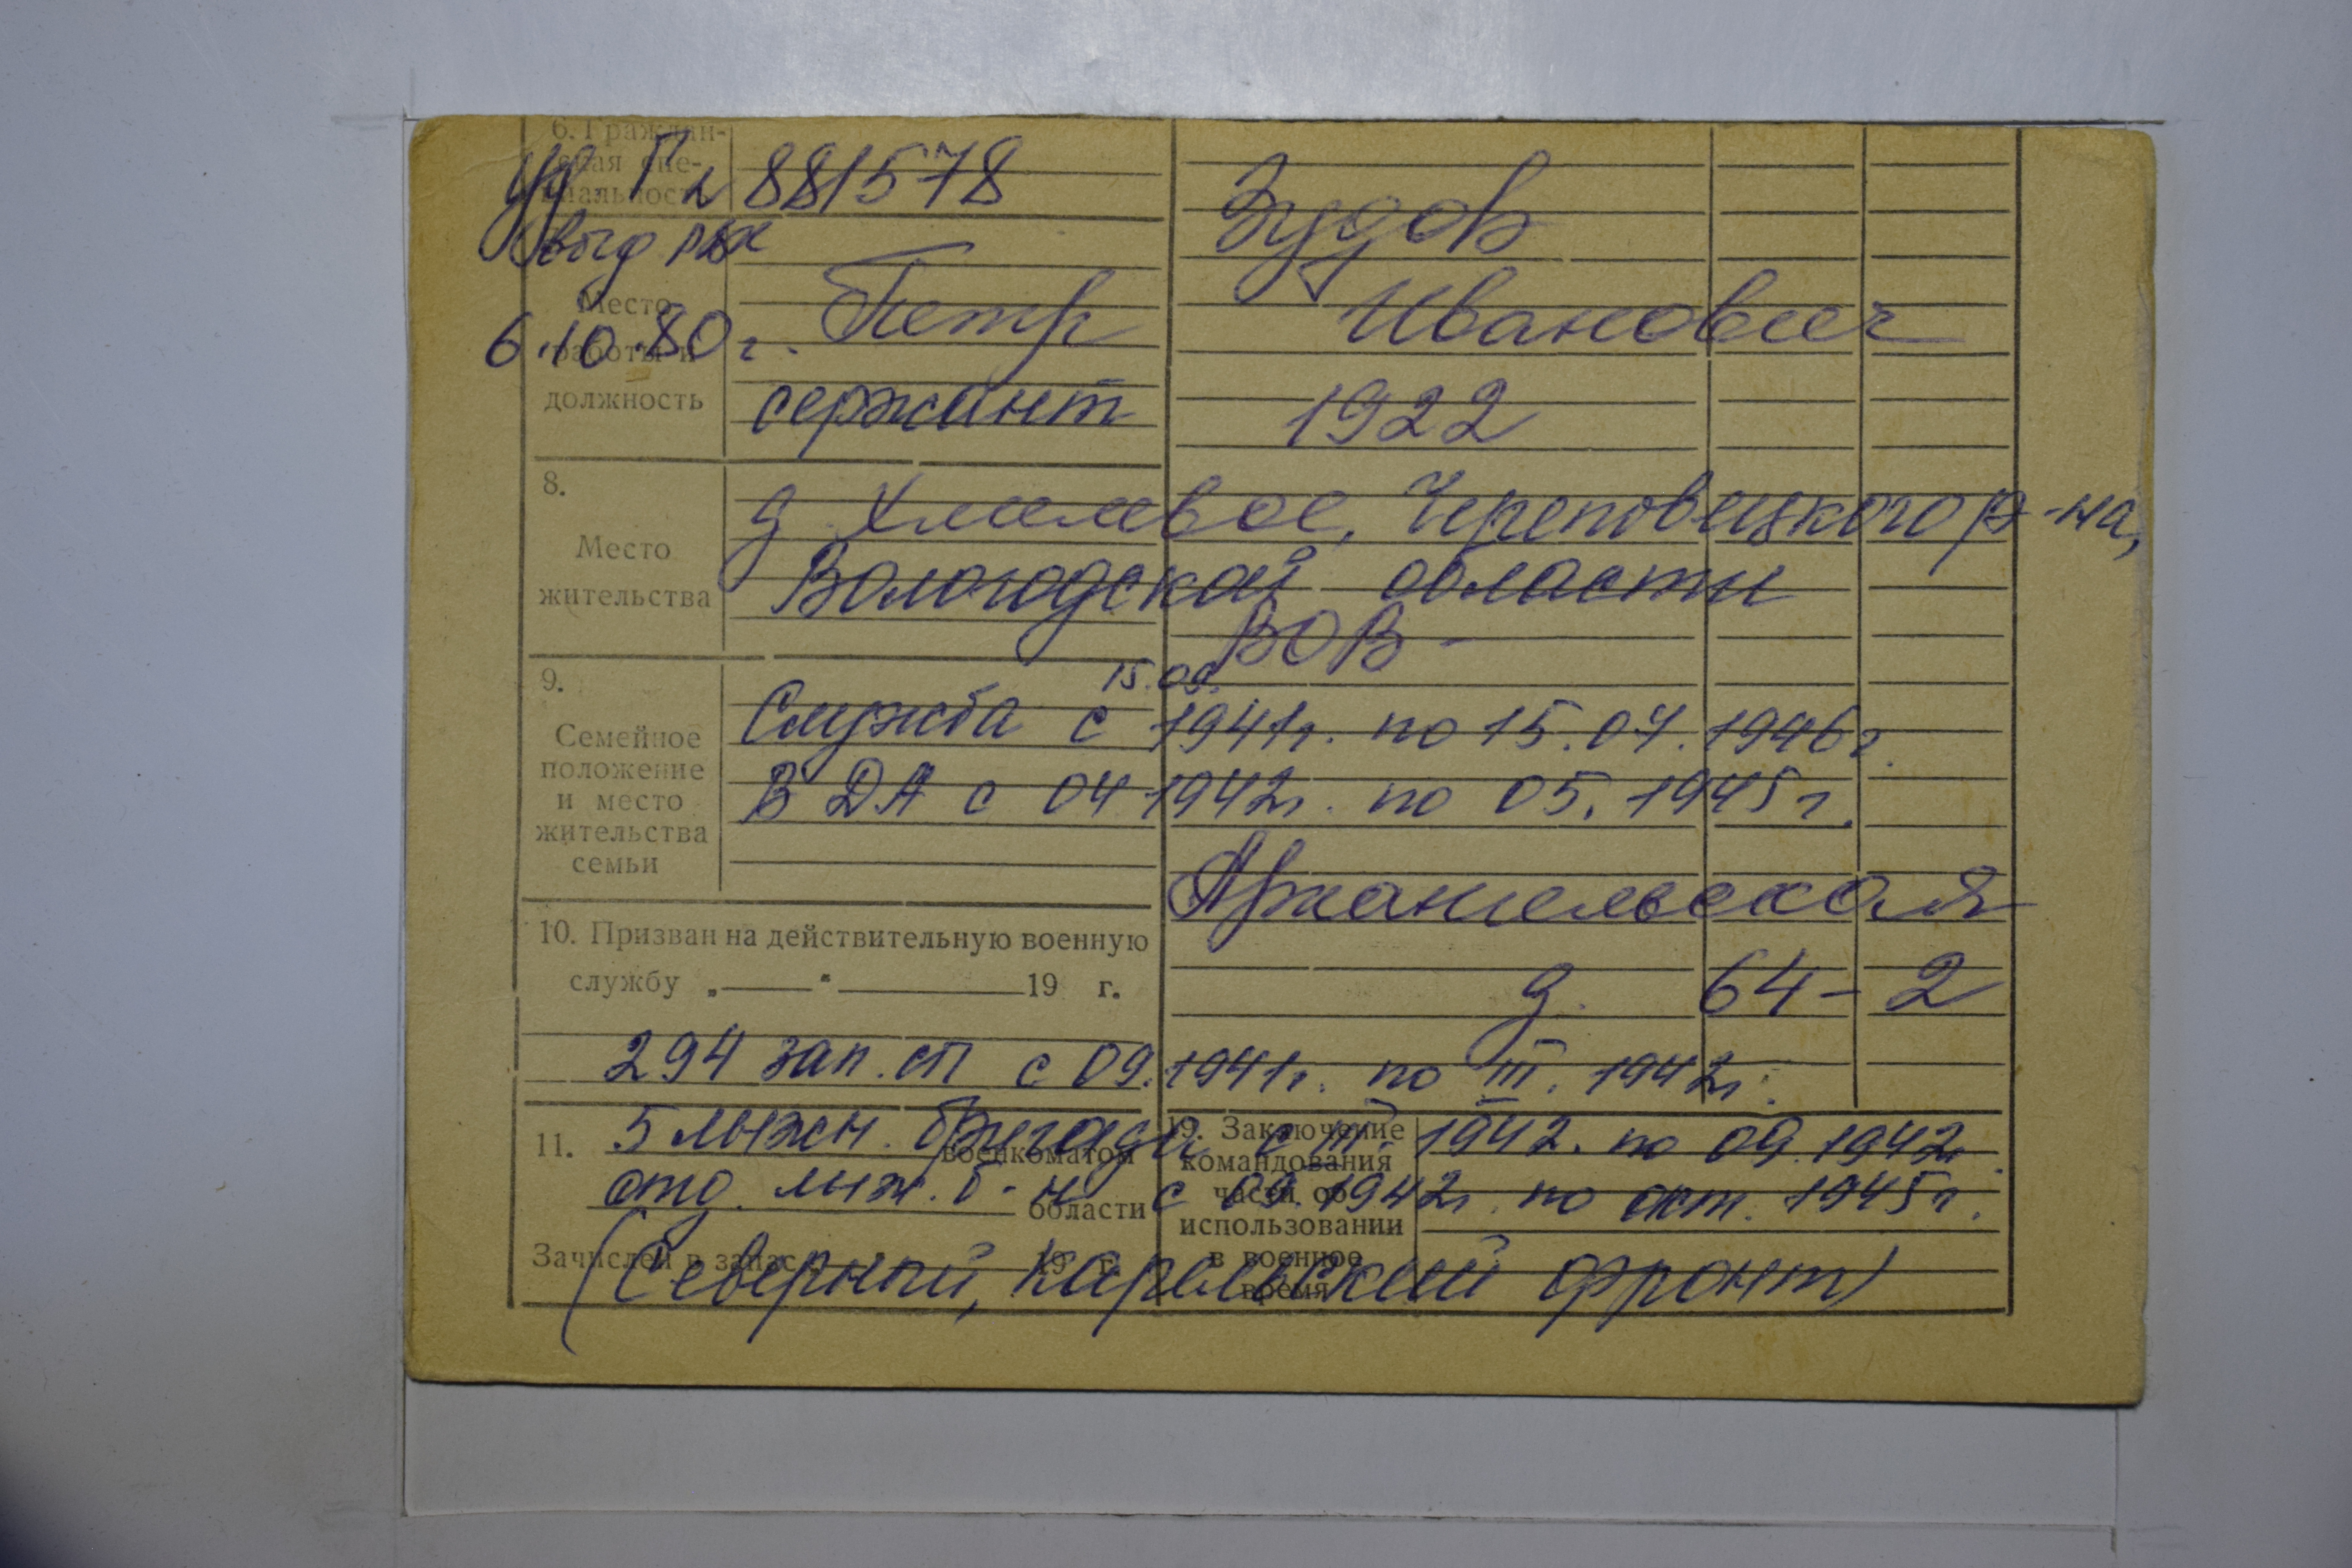 6. Граждан-
ская спе-
циальность
уд. Г л 881578
Зудов
выд рвк
Место
6.10.80 г. Петр Иванович
работы и
должность
сержант 1922
8.
д Хмелевое, Череповецкого р-на,
Место
жительства
Вологодской области
ВОВ -
9.
15.09.
Служба с 1941г. по 15.07.1946г.
Семейное
положение
и место
жительства
семьи
В ДА с 04 1942г. по 05. 1945г.
Архангельская
10. Призван на действительную военную
службу „ “ 19 г.
д. 64 - 2
294 зап. сп с 09. 1941г. по III. 1942г.
5 лыжн. бригада с III. 1942. по 09.1942г.
11.
военкоматом
19. Заключение
командования
части об
использовании
в военное
время
отд. лыж. б-н с 09.1942г. по окт. 1945г.
области
Зачислен в запас 19 г.
(Северный, Карельский фронт)